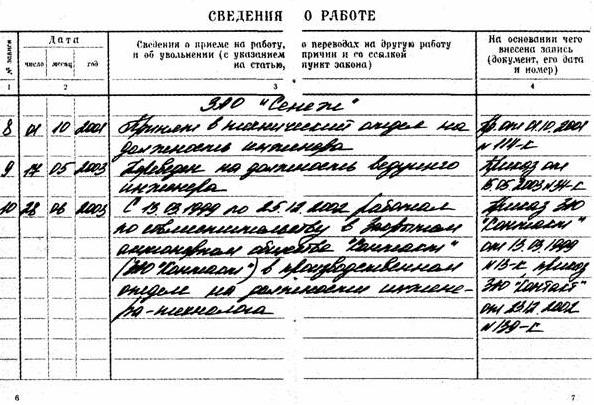 СВЕДЕНИЯ О РАБОТЕ
№ записи
Дата
число
месяц
год
Сведения о приеме на работу, о переводах на другую работу
и об увольнении (с указанием причин и со ссылкой
на статью, пункт закона)
На основании чего
внесена запись
(документ, его дата
и номер)
1 2 3 4
ЗАО "Сенеж"
8 01 10 2001 Принят в технический отдел на Пр. от 01.10.2001
должность инженера № 114-к
9 17 05 2003 Переведен на должность ведущего Приказ от
инженера 5.05.2003 № 34-к
10 28 06 2003 С 13.03.1999 по 25.12.2002 работал Приказ ЗАО
по совместительству в закрытом "Контакт"
акционерном обществе "Контакт" от 13.03.1999
(ЗАО "Контакт") в производственном № 13-к, приказ
отделе на должности инжене- ЗАО "Контакт"
ра-технолога от 23.12.2002
№ 139-к
6 7